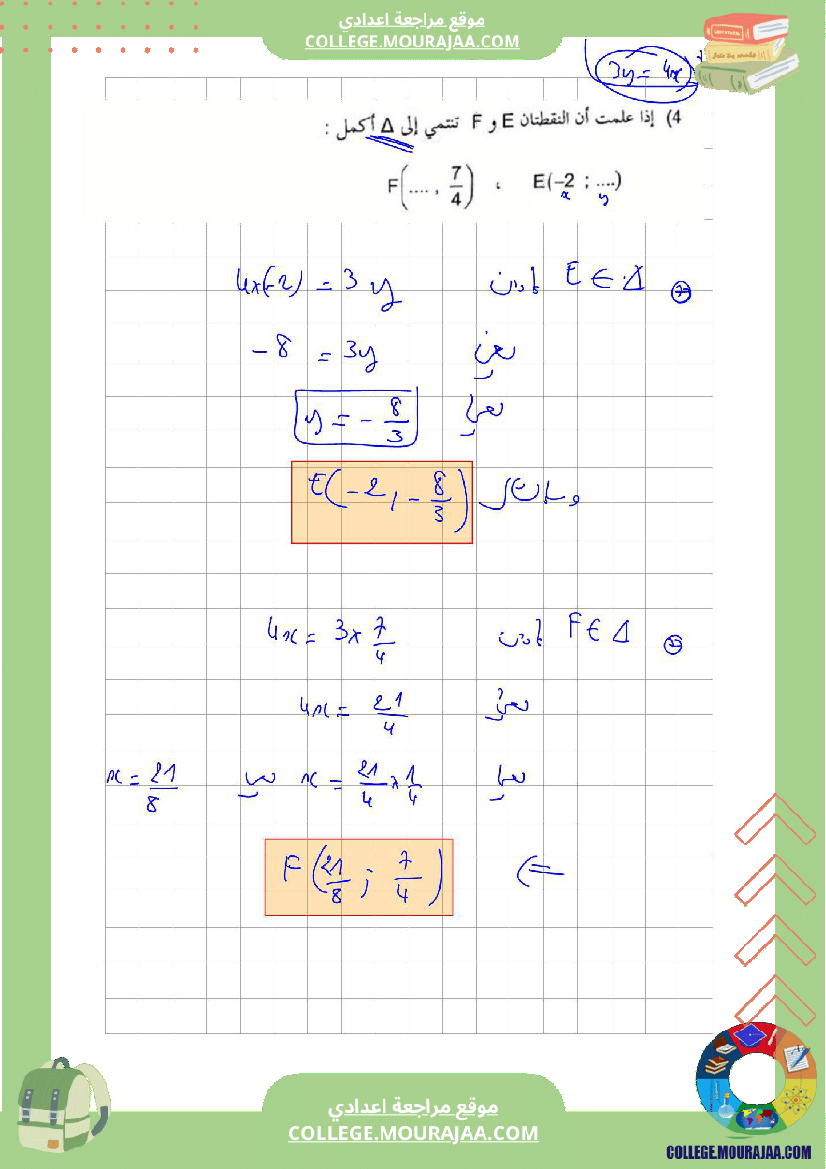 موقع مراجعة اعدادي
COLLEGE.MOURAJAA.COM
3y = 4x
4) إذا علمت أن النقطتان E و F تنتمي إلى Δ أكمل :
E(–2 ; ....) ، F(.... , 7/4)
x y
E ∈ Δ إذن 4×(-2) = 3y
يعني -8 = 3y
يعني y = -8/3
وبالتالي E(-2, -8/3)
F ∈ Δ إذن 4x = 3×7/4
يعني 4x = 21/4
يعني x = 21/4 × 1/4 يعني x = 21/8
⇐ F(21/8 ; 7/4)
موقع مراجعة اعدادي
COLLEGE.MOURAJAA.COM
COLLEGE.MOURAJAA.COM